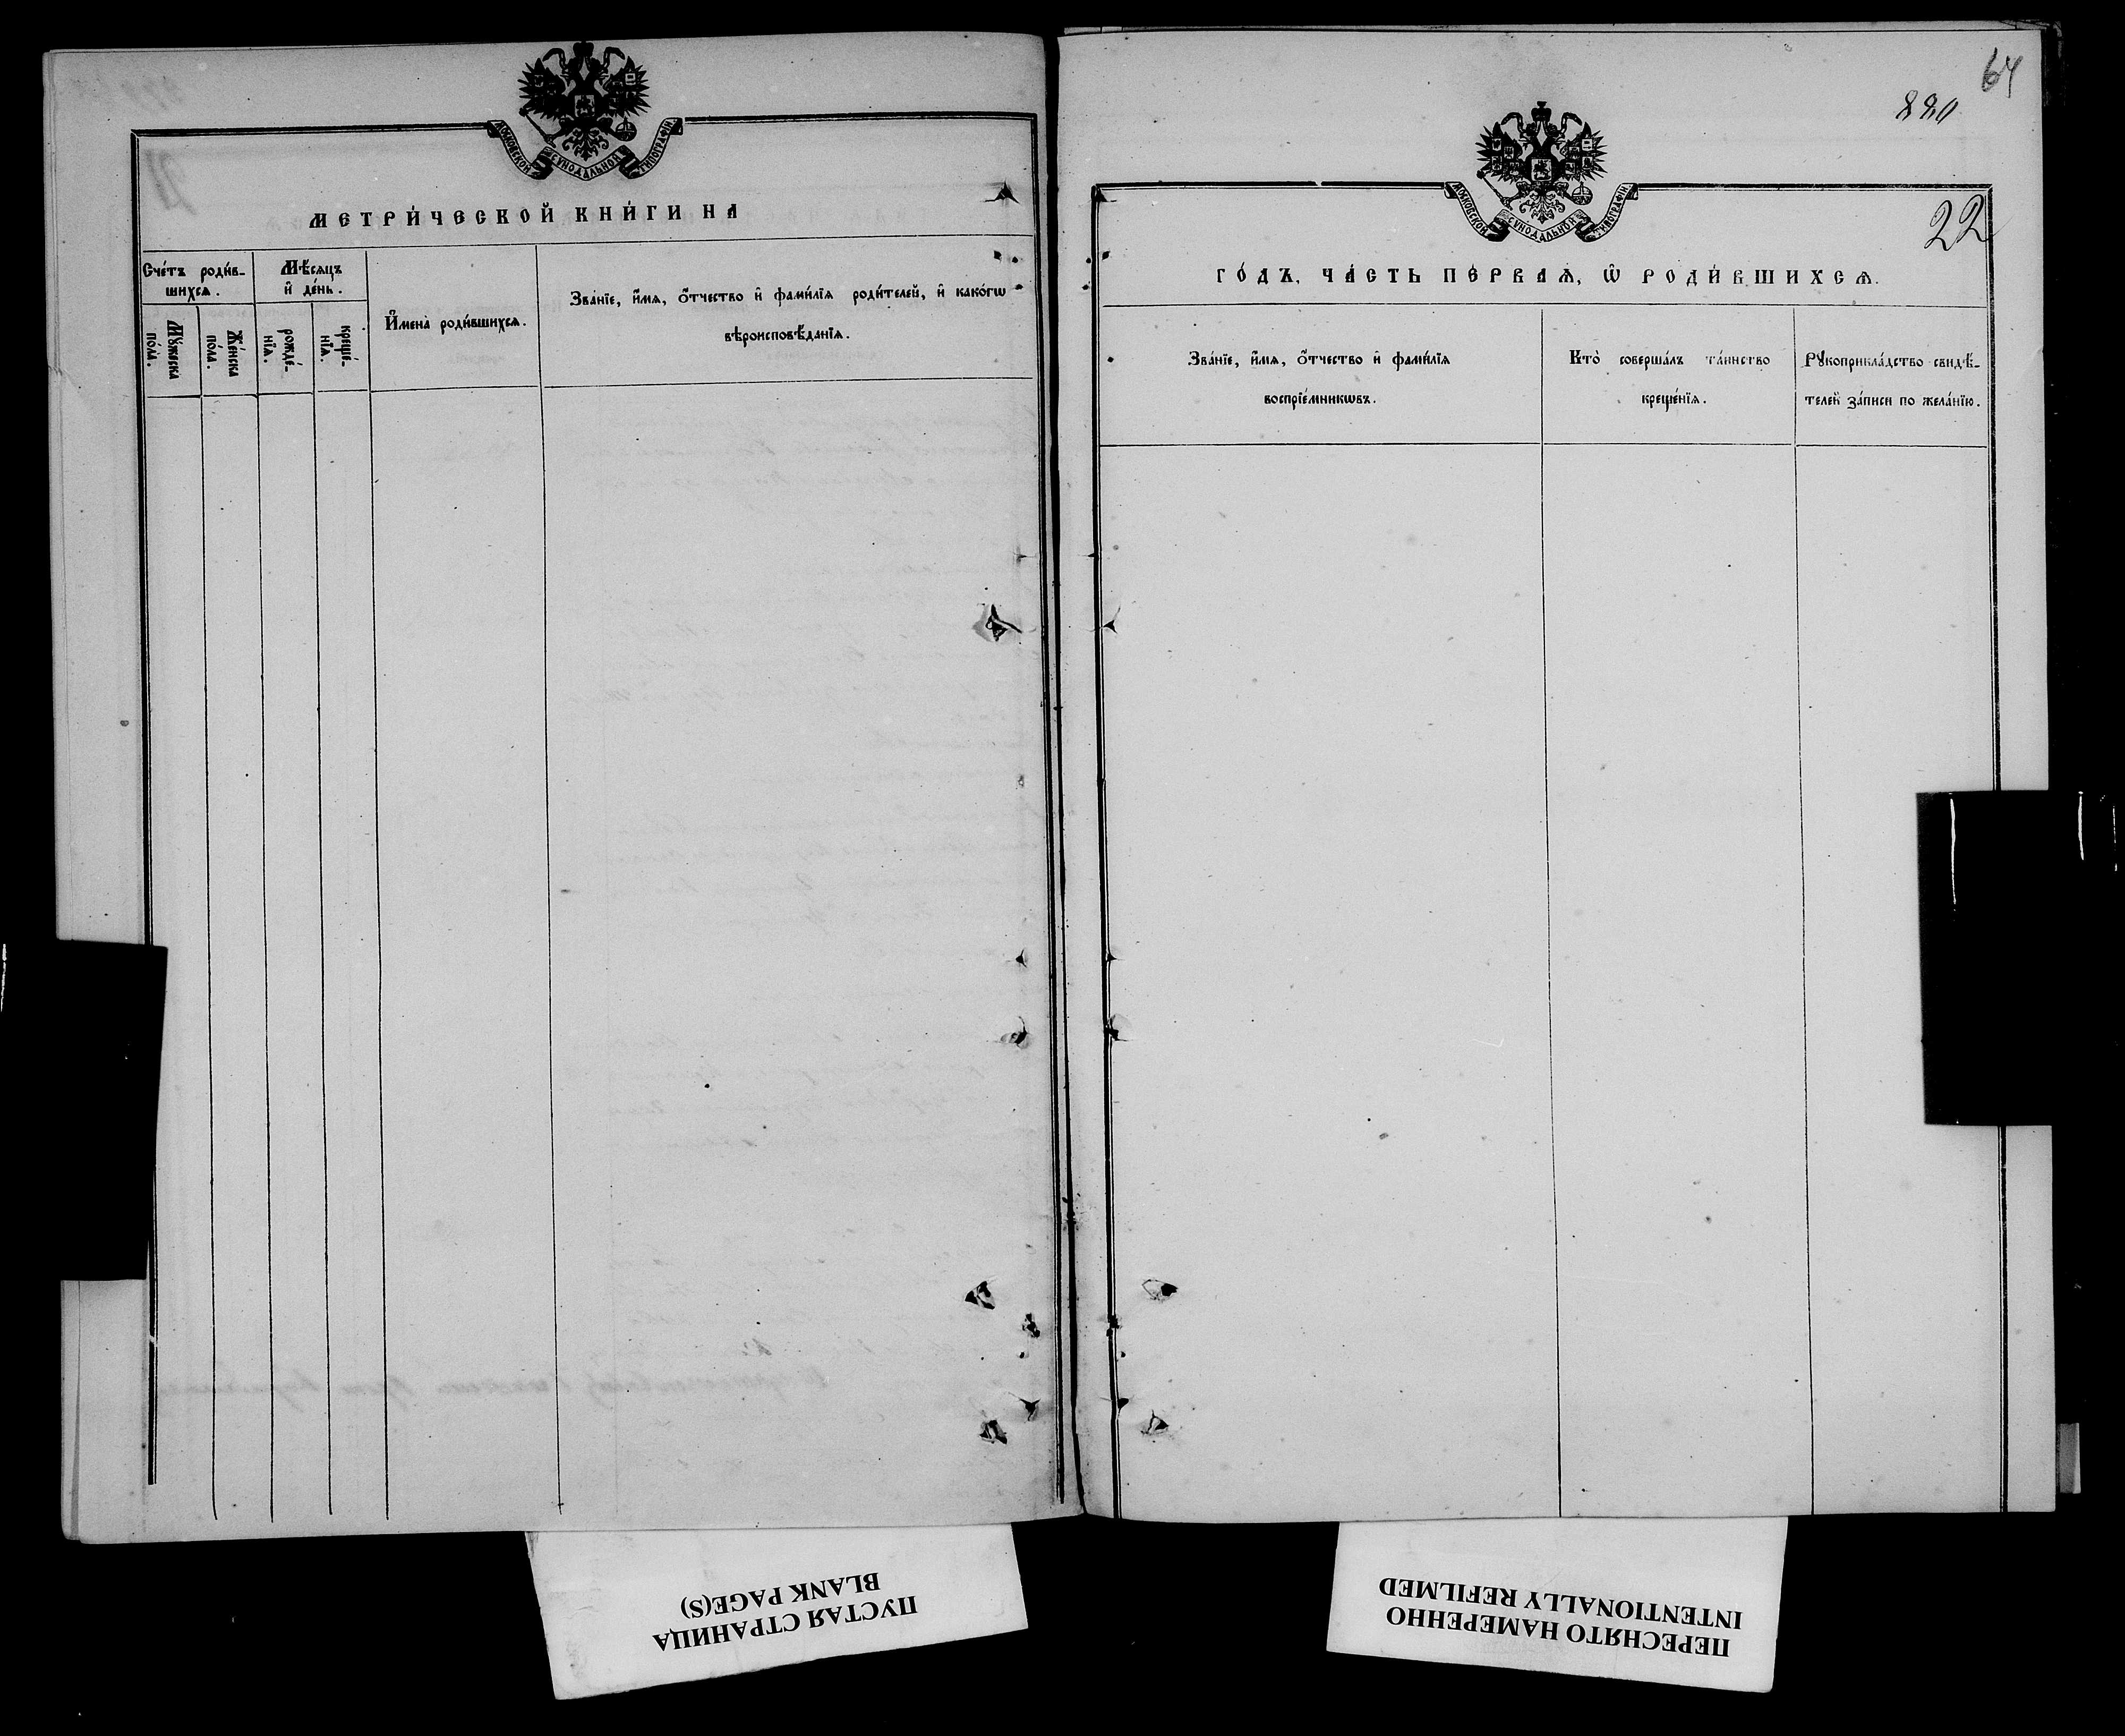 МОСКОВСКОЙ СѴНОДАЛЬНОЙ ТИПОГРАФІИ
МЕТРИ́ЧЕСКОЙ КНИ́ГИ НА
Сче́тъ роди́в-
шихсѧ.
Мѣ́сѧцъ
и҆ де́нь.
И҆мена̀ роди́вшихсѧ.
Зва́нїе, и҆́мѧ, о҆́тчество и҆ фами́лїѧ роди́телей, и҆ како́гѡ
вѣроисповѣ́данїѧ.
Мꙋ́жеска
по́ла.
Же́нска
по́ла.
рожде́-
нїѧ.
креще́-
нїѧ.
64
880
МОСКОВСКОЙ СѴНОДАЛЬНОЙ ТИПОГРАФІИ
22
ГО́ДЪ, ЧА́СТЬ ПЕ́РВАѦ, Ѡ҆ РОДИ́ВШИХСѦ.
Зва́нїе, и҆́мѧ, о҆́тчество и҆ фами́лїѧ
воспрїе́мникѡвъ.
Кто̀ соверша́лъ та́инство
креще́нїѧ.
Рꙋкоприкла́дство свидѣ́-
телей за́писи по жела́нїю.
ПУСТАЯ СТРАНИЦА
BLANK PAGE(S)
ПЕРЕСНЯТО НАМЕРЕННО
INTENTIONALLY REFILMED